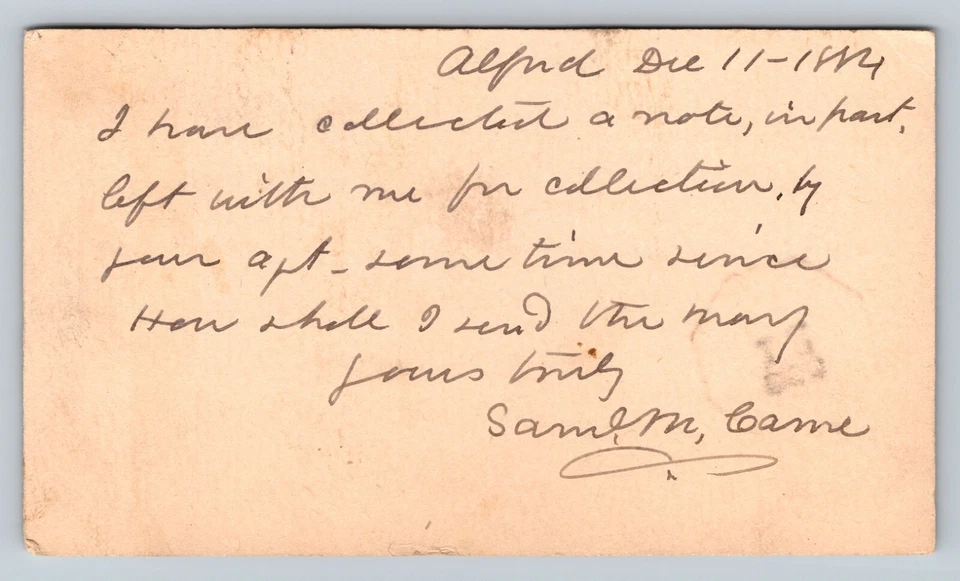 Alfred Dec 11-1884
I have collected a note, in part,
left with me for collection, by
your agt - some time since
How shall I send the money
yours truly
Saml. M, Came